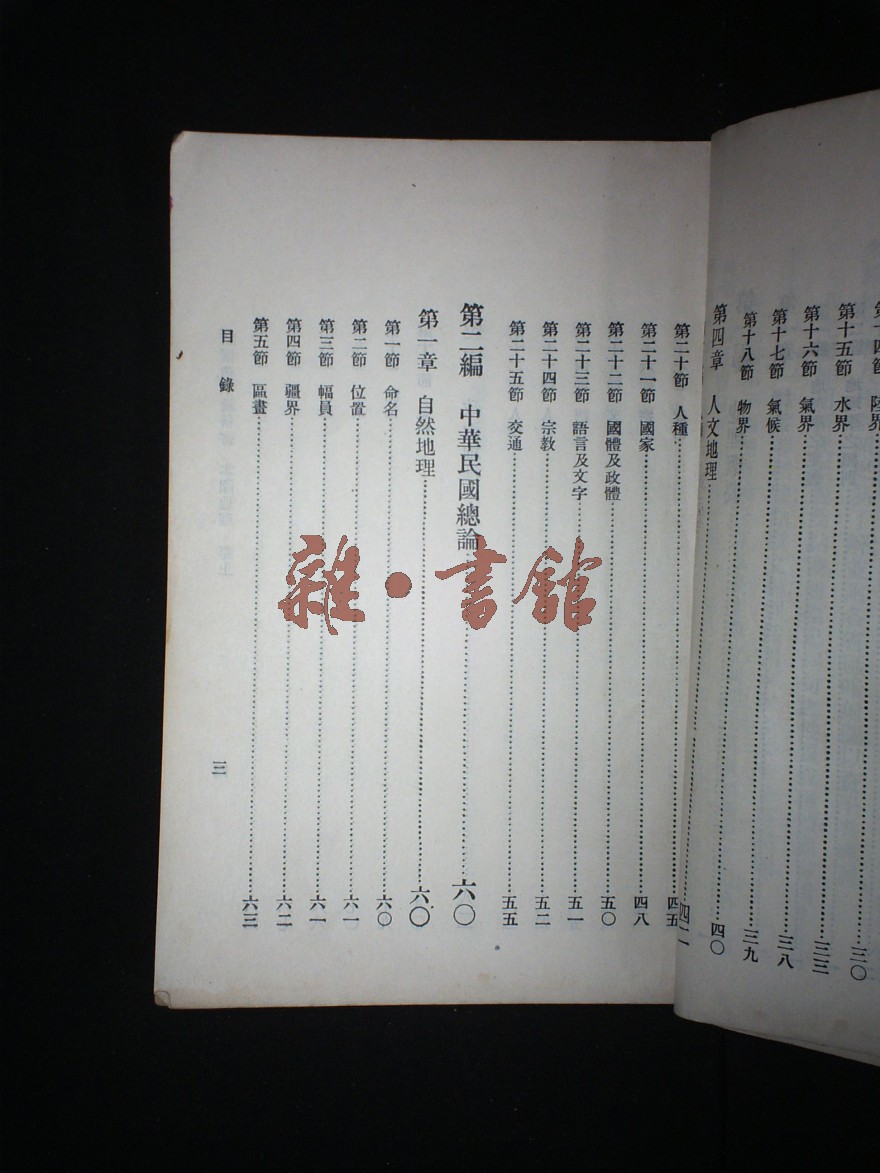 十四節 陸界……三〇
第十五節 水界……三三
第十六節 氣界……三八
第十七節 氣候……三九
第十八節 物界……四〇
第四章 人文地理……四二
第二十節 人種……四五
第二十一節 國家……四八
第二十二節 國體及政體……五〇
第二十三節 語言及文字……五一
第二十四節 宗教……五二
第二十五節 交通……五五
第二編 中華民國總論……六〇
第一章 自然地理……六〇
第一節 命名……六〇
第二節 位置……六一
第三節 幅員……六一
第四節 疆界……六二
第五節 區畫……六三
目錄 三
雜·書館